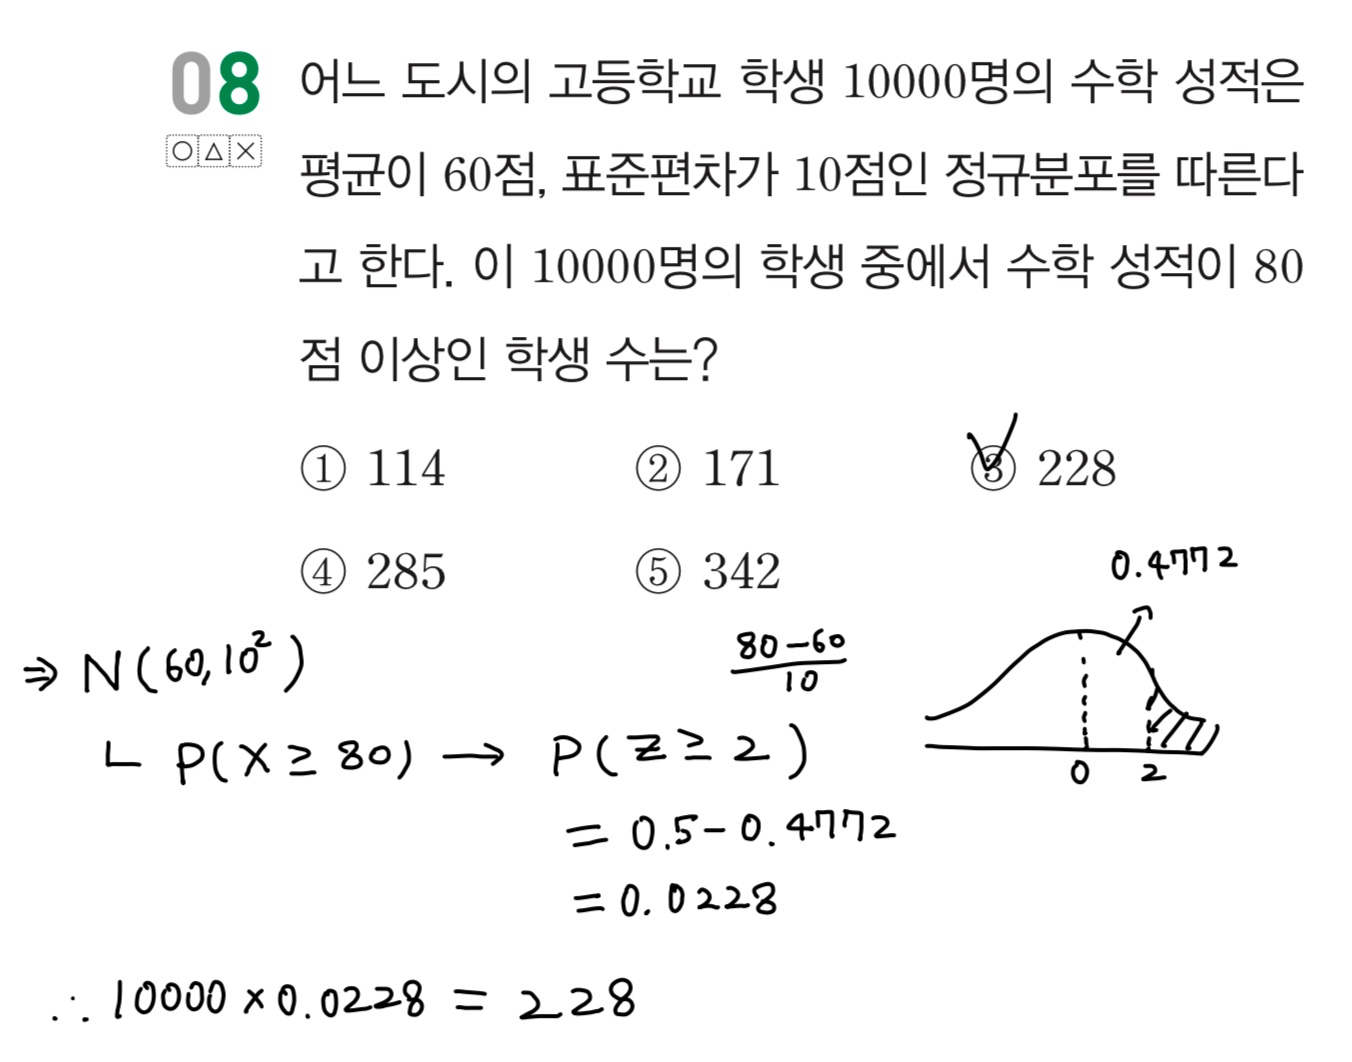 08 어느 도시의 고등학교 학생 10000명의 수학 성적은
○△×
평균이 60점, 표준편차가 10점인 정규분포를 따른다
고 한다. 이 10000명의 학생 중에서 수학 성적이 80
점 이상인 학생 수는?
① 114 ② 171 ③ 228
④ 285 ⑤ 342
0.4772
⇒ N(60, 10²)
80-60
10
ㄴ P(X ≥ 80) → P(Z ≥ 2)
0 2
= 0.5-0.4772
= 0.0228
∴ 10000 × 0.0228 = 228